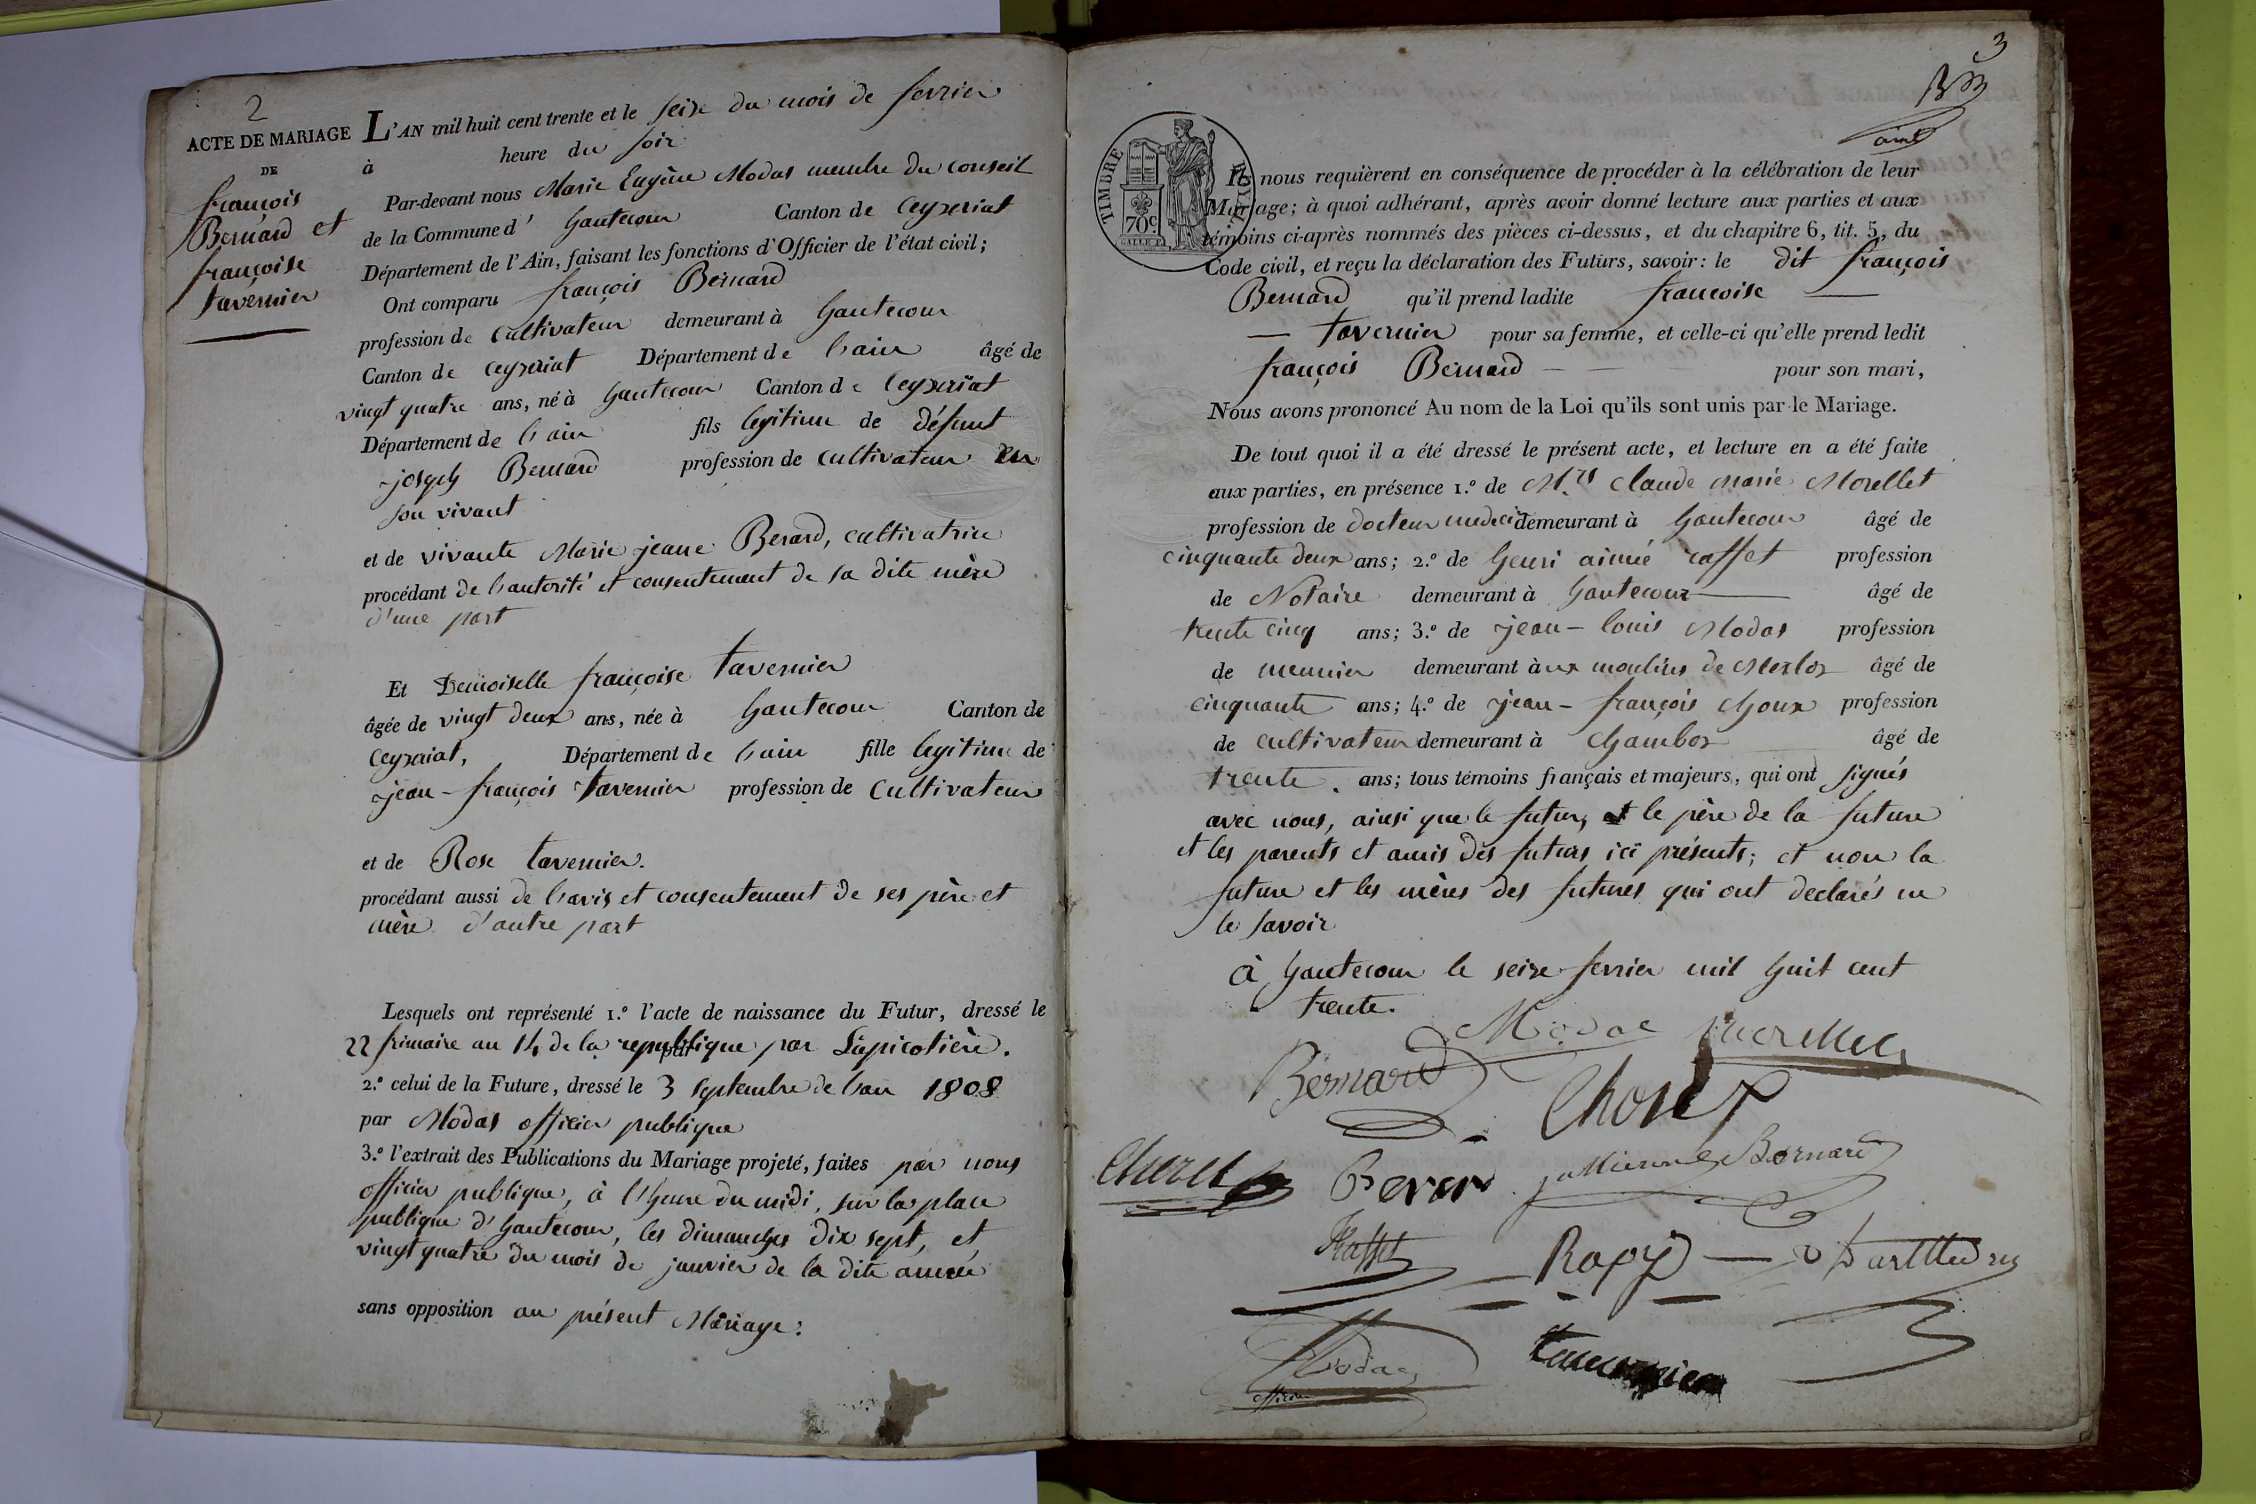 2
ACTE DE MARIAGE
DE
françois
Bernard et
françoise
tavernier
L'AN mil huit cent trente et le seize du mois de fevrier
à heure du soir
Par-devant nous Marie Eugène Modas membre du conseil
de la Commune d' hautecour Canton de Ceyzeriat
Département de l'Ain, faisant les fonctions d'Officier de l'état civil;
Ont comparu françois Bernard
profession de Cultivateur demeurant à hautecour
Canton de ceyzeriat Département de l'ain âgé de
vingt quatre ans, né à hautecour Canton de Ceyzeriat
Département de l'ain fils legitime de défunt
joseph Bernard profession de cultivateur en
son vivant
et de vivante Marie jeane Berard, cultivatrice
procédant de l'autorité et consentement de sa dite mère
d'une part
Et Demoiselle françoise tavernier
âgée de vingt deux ans, née à hautecour Canton de
Ceyzeriat, Département de l'ain fille legitime de
jean-françois tavernier profession de Cultivateur
et de Rose tavernier.
procédant aussi de l'avis et consentement de ses père et
mère d'autre part
Lesquels ont représenté 1.º l'acte de naissance du Futur, dressé le
22 frimaire an 14 de la republique par Lapicotière.
par
2.º celui de la Future, dressé le 3 septembre de l'an 1808
par Modas officier publique
3.º l'extrait des Publications du Mariage projeté, faites par nous
officier publique, à l'heure du midi, sur la place
publique d'hautecour, les dimanches dix sept, et
vingt quatre du mois de janvier de la dite année
sans opposition au présent Mariage:
3
TIMBRE ROYAL
70c
Ils nous requièrent en conséquence de procéder à la célébration de leur
Mariage; à quoi adhérant, après avoir donné lecture aux parties et aux
témoins ci-après nommés des pièces ci-dessus, et du chapitre 6, tit. 5, du
Code civil, et reçu la déclaration des Futurs, savoir: le dit françois
Bernard qu'il prend ladite francoise
tavernier pour sa femme, et celle-ci qu'elle prend ledit
françois Bernard pour son mari,
Nous avons prononcé Au nom de la Loi qu'ils sont unis par le Mariage.
De tout quoi il a été dressé le présent acte, et lecture en a été faite
aux parties, en présence 1.º de M.rs Claude Marie Morellet
profession de docteur medecin demeurant à hautecour âgé de
cinquante deux ans; 2.º de henri aimée raffet profession
de Notaire demeurant à hautecour âgé de
trente cinq ans; 3.º de jean-louis Modas profession
de meunier demeurant àux moulins de Merloz âgé de
cinquante ans; 4.º de jean-françois choux profession
de cultivateur demeurant à Chamboz âgé de
trente. ans; tous témoins français et majeurs, qui ont signés
avec nous, ainsi que le futur, et le père de la future
et les parents et amis des futurs ici présents; et non la
future et les mères des futures qui ont declarés ne
le savoir
à hautecour le seize fevrier mil huit cent
trente.
Modas Morellet
Bernard
Bernard
Raffet
Modas
officier